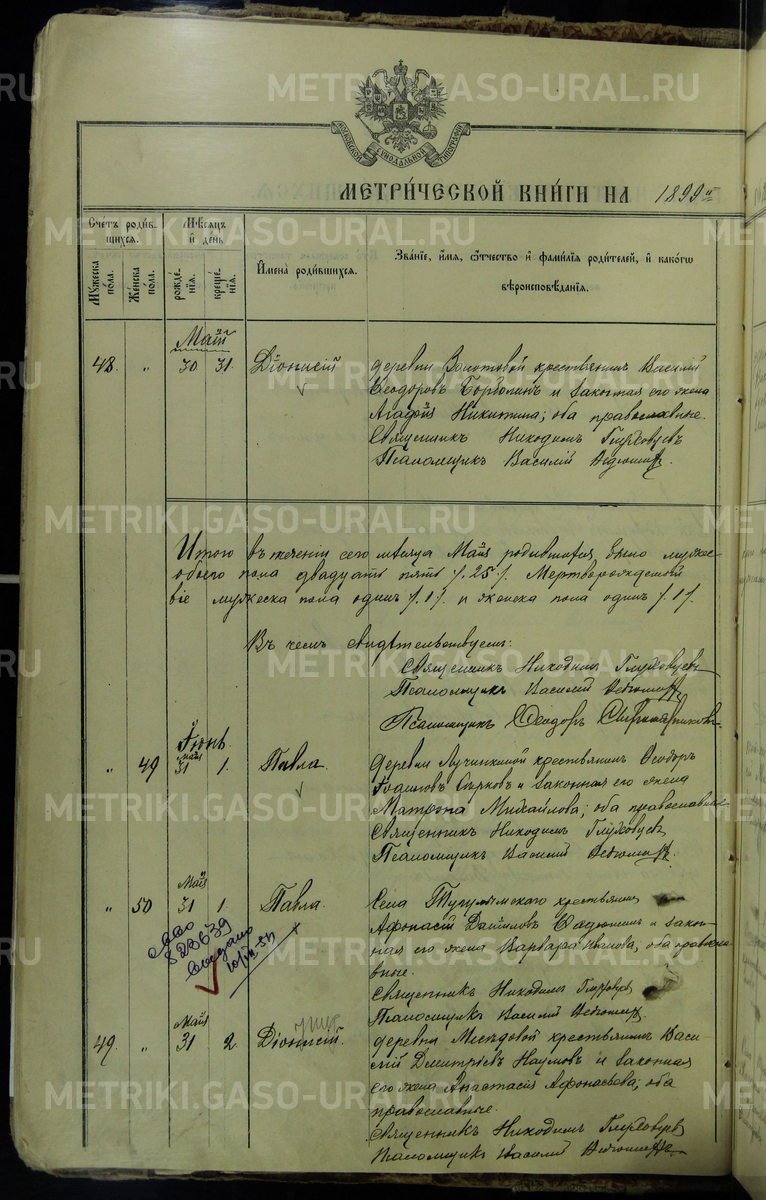 METRIKI.GASO-URAL.RU
МОСКОВСКОЙ СѴНОДАЛЬНОЙ ТИПОГРАФІИ
МЕТРИ́ЧЕСКОЙ КНИ́ГИ НА 1899й
Счетъ роди́вшихся.
Му́жеска по́ла.
Же́нска по́ла.
Мѣ́сяцъ и҆ де́нь
рожде́нїя.
креще́нїя.
И҆мена̀ роди́вшихся.
Зва́нїе, и҆́мя, ѻ҆́тчество и҆ фами́лїя роди́телей, и҆ како́гѡ
вѣроисповѣ́данїя.
Май
48. " 30 31. Діонисій
деревни Золотовой крестьянинъ Василій
Ѳеодоровъ и законная его жена
Агафія Никитина; оба православные.
Священникъ Никодимъ Глубковцевъ
Псаломщикъ Василій
Итого въ теченіи сего мѣсяца Мая родившихся было мужес
обоего пола двадцать пять /. 25 /. Мертворожденой
віе мужеска пола одинъ /. 1 /. и женска пола одинъ /. 1 /.
Въ чемъ свидѣтельствуемъ:
Священникъ Никодимъ Глубковцевъ
Псаломщикъ Василій
Псаломщикъ Ѳеодоръ
Іюнь.
" 49 Май 31 1. Павла.
деревни Лучинкиной крестьянинъ Ѳеодоръ
Сырковъ и законная его жена
Матрона Михайлова; оба православные
Священникъ Никодимъ Глубковцевъ
Псаломщикъ Василій
" 50 Май 31 1. Павла.
Села Тугулымскаго крестьянинъ
Афонасій Даниловъ и закон-
ная его жена Варвара Иванова, оба правосла-
вные.
Священникъ Никодимъ Глубковцевъ
Псаломщикъ Василій
823639
Выдано
49. " Май 31 2 Діонисій.
умер
деревни крестьянинъ Васи-
лій Дмитріевъ Наумовъ и законная
его жена Анастасія Афонасьева; оба
православные.
Священникъ Никодимъ Глубковцевъ
Псаломщикъ Василій